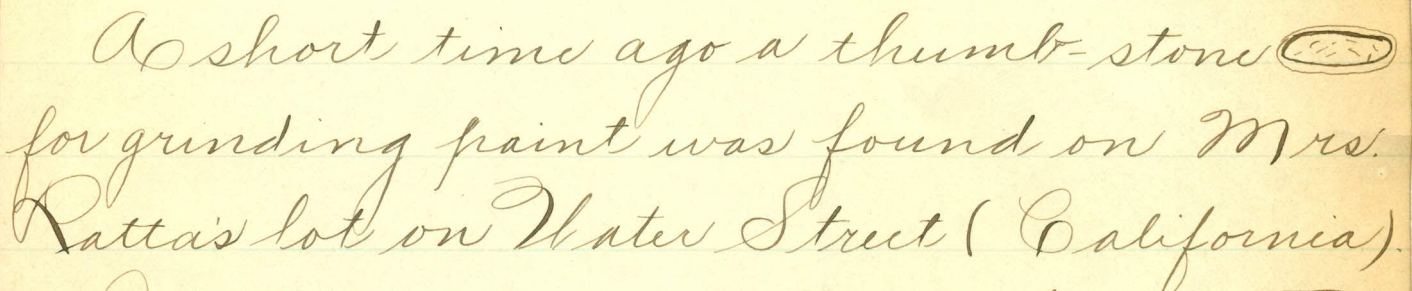 A short time ago a thumb-stone
for grinding paint was found on Mrs.
Ratta's lot on Water Street (California).